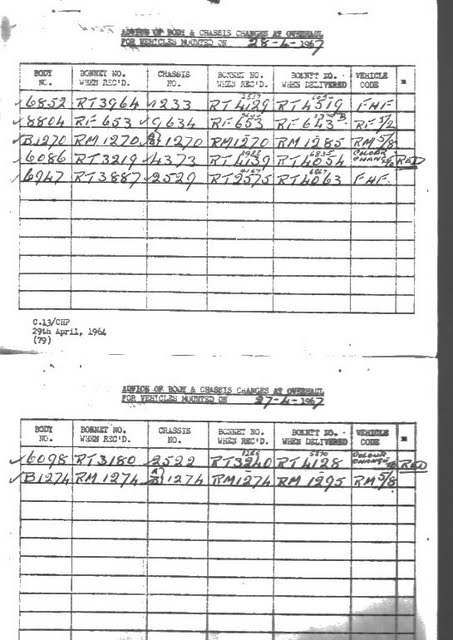 ADVICE OF BODY & CHASSIS CHANGES AT OVERHAUL
FOR VEHICLES MOUNTED ON 28-4-1967
BODY NO. BONNET NO. WHEN REC'D. CHASSIS NO. BONNET NO. WHEN REC'D. BONNET NO. WHEN DELIVERED VEHICLE CODE
✓6852 RT3964 ✓1233 RT4129 RT4519 FHF
✓8804 RF 653 ✓9634 RF653 RF643 RF 5/2
✓B1270 RM 1270 1270 RM1270 RM 1285 RM 5/8
✓6086 RT3219 ✓4373 RT4139 RT4054 COLOUR CHANGE RED
✓6947 RT3887 ✓2529 RT2575 RT4063 FHF
C.13/CHP
29th April, 1964
(79)
ADVICE OF BODY & CHASSIS CHANGES AT OVERHAUL
FOR VEHICLES MOUNTED ON 27-4-1967
BODY NO. BONNET NO. WHEN REC'D. CHASSIS NO. BONNET NO. WHEN REC'D. BONNET NO. WHEN DELIVERED VEHICLE CODE
✓6098 RT3180 ✓2522 RT3240 RT4128 COLOUR CHANGE RED
✓B1274 RM 1274 1274 RM1274 RM 1295 RM 5/8